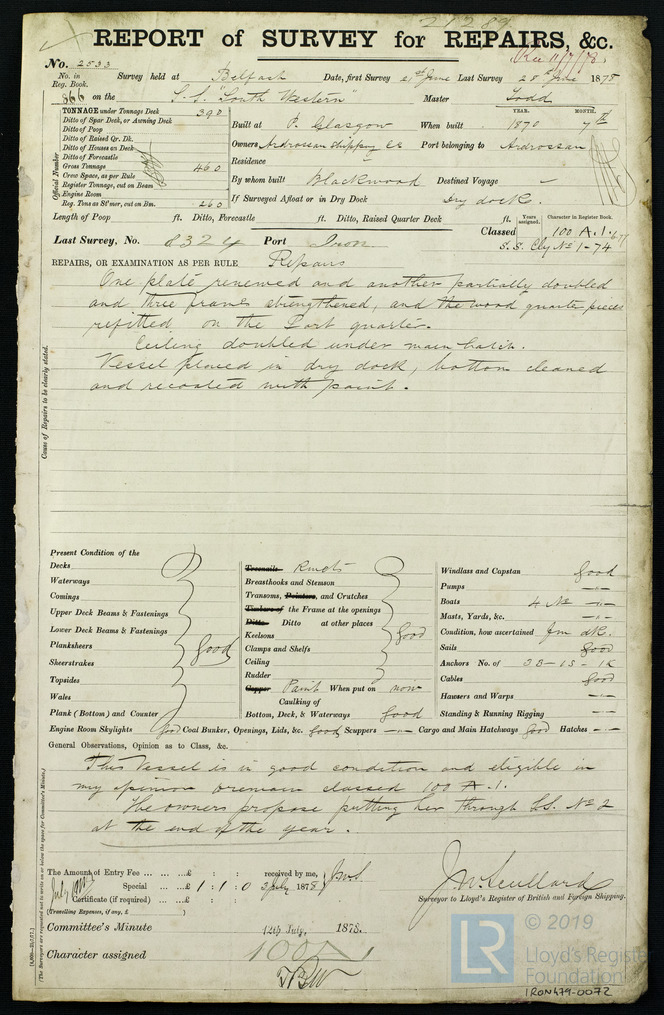 21289
REPORT of SURVEY for REPAIRS, &c.
Rec 11/7/78
No. 2533
No. in Reg. Book.
Survey held at Belfast Date, first Survey 21st June Last Survey 28th June 1878
866 on the S.S. "South Western" Master Todd
TONNAGE under Tonnage Deck 390
Ditto of Spar Deck, or Awning Deck
Ditto of Poop
Ditto of Raised Qr. Dk.
Ditto of Houses on Deck
Ditto of Forecastle
Gross Tonnage 460
Crew Space, as per Rule
Register Tonnage, cut on Beam
Engine Room
Reg. Tons as St'mer, cut on Bm. 260
Official Number
YEAR. MONTH.
Built at P. Glasgow When built 1870 7th
Owners Ardrossan Shipping Co Port belonging to Ardrossan
Residence
By whom built Blackwood Destined Voyage –
If Surveyed Afloat or in Dry Dock Dry dock.
Length of Poop ft. Ditto, Forecastle ft. Ditto, Raised Quarter Deck ft.
Years assigned. Character in Register Book.
Classed 100 A.1.
S.S. Cly No 1-74
Last Survey, No. 8324 Port Iron
REPAIRS, OR EXAMINATION AS PER RULE Repairs
One plate renewed and another partially doubled
and three frames strengthened, and the wood quarter pieces
refitted on the Port quarter.
Ceiling doubled under main hatch.
Vessel placed in dry dock, bottom cleaned
and recoated with paint.
Cause of Repairs to be clearly stated.
Present Condition of the
Decks
Waterways
Comings
Upper Deck Beams & Fastenings
Lower Deck Beams & Fastenings
Planksheers
Sheerstrakes
Topsides
Wales
Plank (Bottom) and Counter
Good
Treenails Rivets
Breasthooks and Stemson
Transoms, Pointers, and Crutches
Timbers of the Frame at the openings
Ditto Ditto at other places
Keelsons
Clamps and Shelfs
Ceiling
Rudder
Good
Copper Paint When put on now
Caulking of
Bottom, Deck, & Waterways Good
Windlass and Capstan Good
Pumps -"-
Boats 4 No -"-
Masts, Yards, &c. -"-
Condition, how ascertained fm dk.
Sails Good
Anchors No. of 3B-1S-1K
Cables Good
Hawsers and Warps -"-
Standing & Running Rigging -"-
Engine Room Skylights Good Coal Bunker, Openings, Lids, &c. Good Scuppers -"- Cargo and Main Hatchways Good Hatches -"-
General Observations, Opinion as to Class, &c.
This Vessel is in good condition and eligible in
my opinion to remain classed 100 A.1.
The owners propose putting her through S.S. No 2
at the end of the year.
(The Surveyors are requested not to write on or below the space for Committee's Minute.)
The Amount of Entry Fee ... £ : : received by me,
Special ... £ 1 : 1 : 0 2 July 1878
Certificate (if required) ... £ : :
(Travelling Expenses, if any, £ )
J.W. Scullard
Surveyor to Lloyd's Register of British and Foreign Shipping.
Committee's Minute 12th July, 1878.
Character assigned 100A1
© 2019
LR
Lloyd's Register
Foundation
IRON479-0072